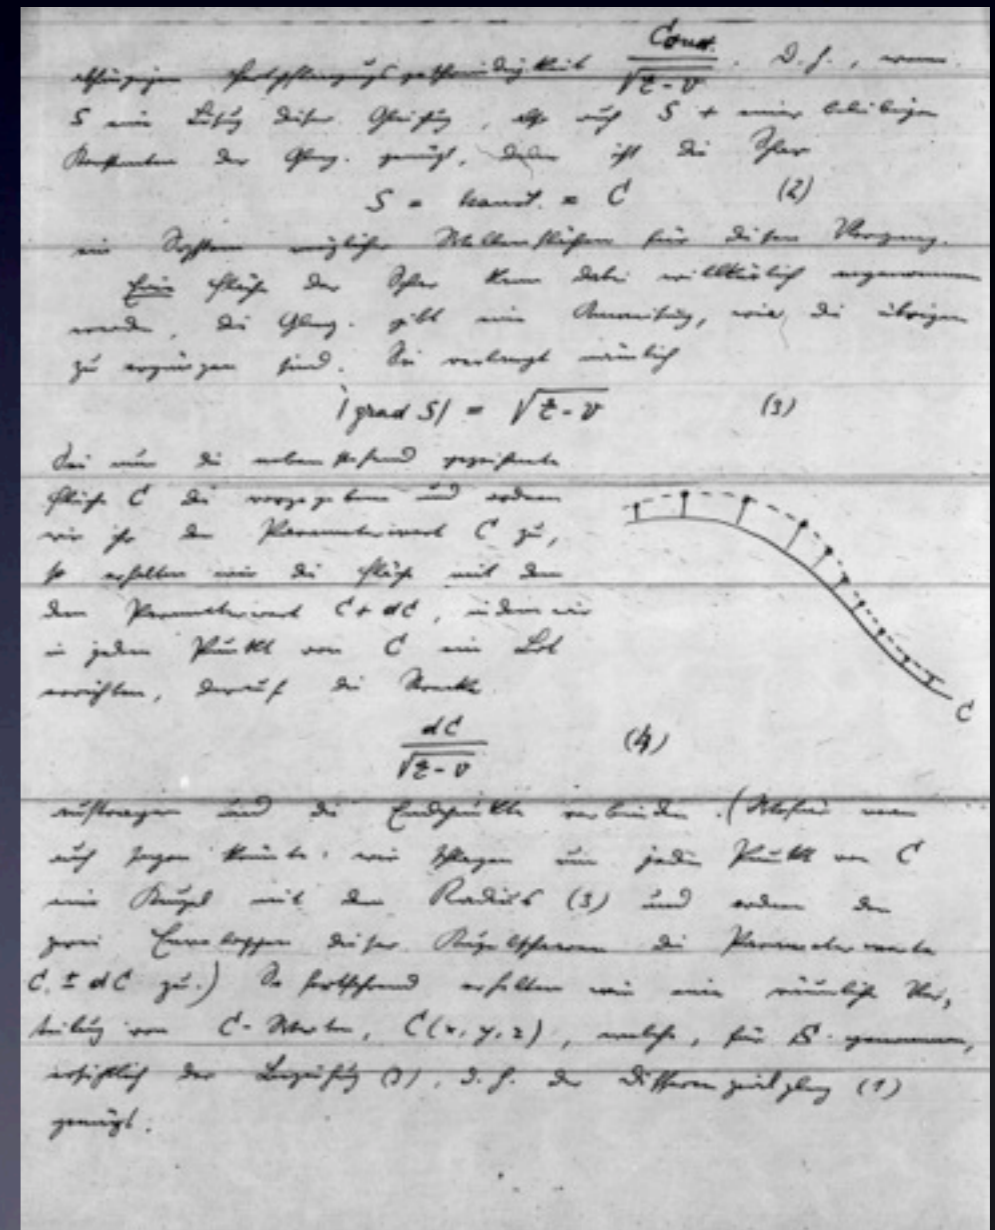 abhängigen Fortpflanzungsgeschwindigkeit Const./√(E-V). D.h., wenn
S eine Lösung dieser Gleichung, also auch S + einer beliebigen
Konstanten der Glchg. genügt, dann ist die Schar
S = konst. = C (2)
ein System möglicher Wellenflächen für diesen Vorgang.
Eine Fläche der Schar kann dabei willkürlich angenommen
werden, die Glchg. gibt eine Anweisung, wie die übrigen
zu ergänzen sind. Sie verlangt nämlich
|grad S| = √(E-V) (3)
Sei nun die nebenstehend gezeichnete
Fläche C die vorgegebene und ordnen
wir ihr den Parameterwert C zu,
so erhalten wir die Fläche mit dem
dem Parameterwert C + dC, indem wir
in jedem Punkt von C ein Lot
errichten, darauf die Strecke
dC/√(E-V) (4)
C
auftragen und die Endpunkte verbinden. (
auch sagen könnte: wir schlagen um jeden Punkt von C
eine Kugel mit dem Radius (3) und ordnen den
zwei Enveloppen dieser Kugelscharen die Parameterwerte
C ± dC zu.) So fortfahrend erhalten wir eine räumliche Ver-
teilung von C-Werten, C(x, y, z), welche, für S genommen,
ersichtlich der Beziehung (3), d.h. der Differenzialglchg (1)
genügt.